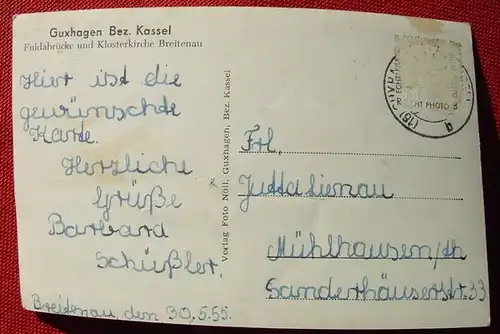 Guxhagen Bez. Kassel
Fuldabrücke und Klosterkirche Breitenau
Hier ist die
gewünschte
Karte.
Herzliche
Grüße
Barbara
Schüßler.
Breitenau, den 30.5.55.
Verlag Foto Nöll, Guxhagen, Bez. Kassel
ECHT PHOTO
(16)
b
Frl.
Jutta Lienau
Mühlhausen/th
Sanderhäuserstr. 33